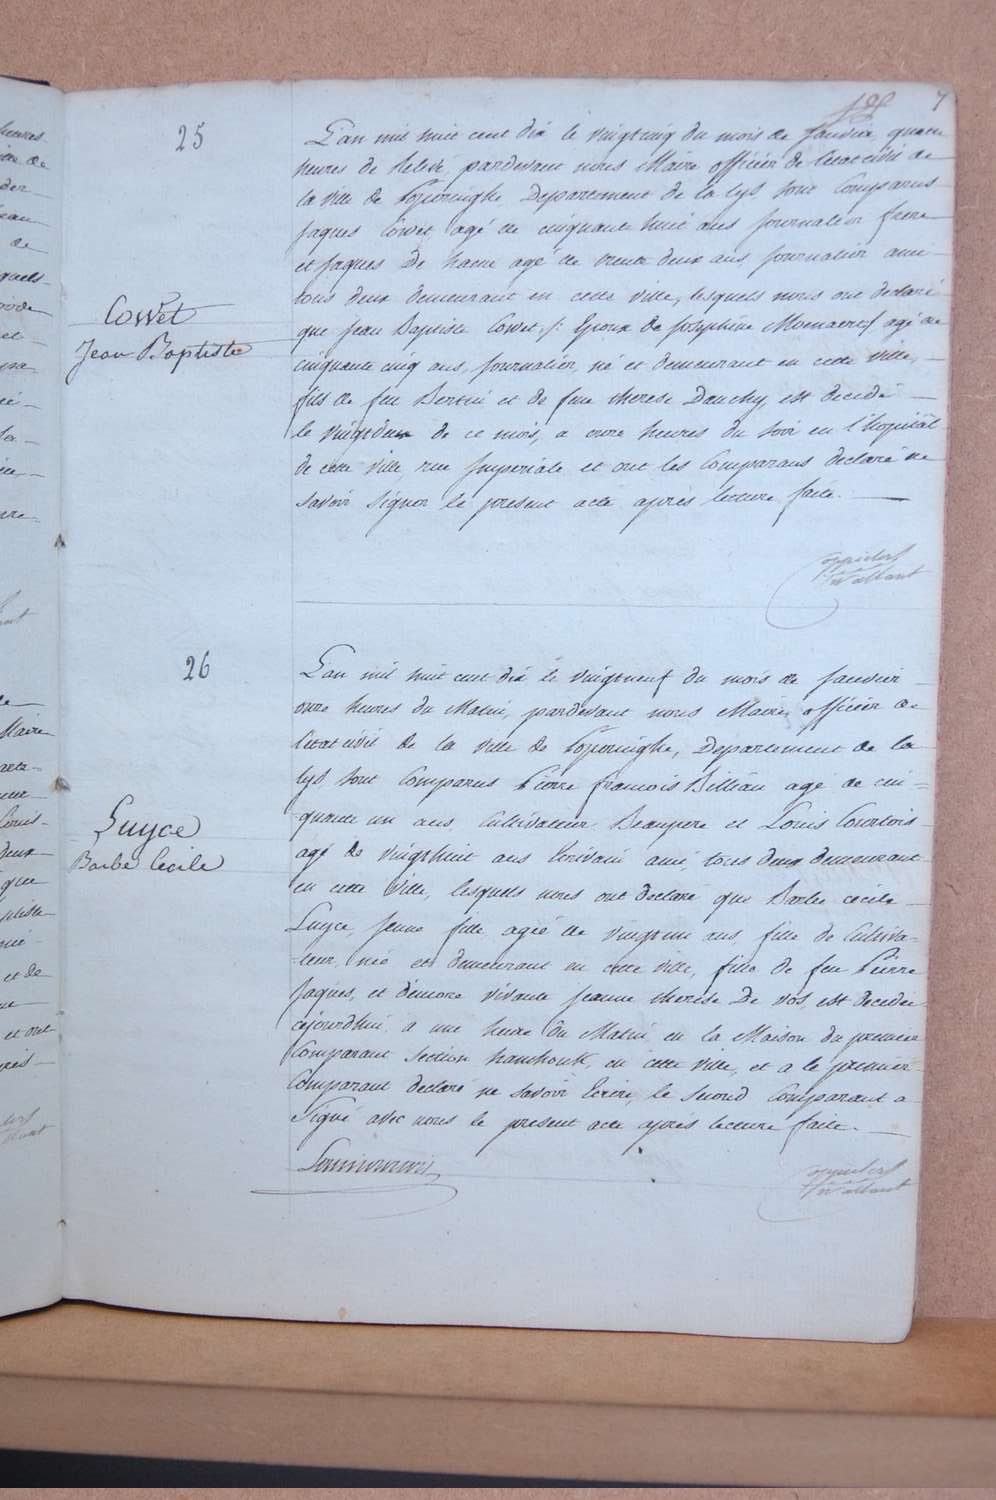 7
25
Cowet
Jean Baptiste
L'an mil huit cent dix le vingtcinq du mois de Janvier quatre
heures de relevé, pardevant nous Maire officier de l'etat civil de
la ville de Poperinghe Departement de la Lys, sont Comparus
Jaques Cowet agé de cinquante huit ans Journalier frere
et Jaques De haene agé de trente deux ans Journalier ami
tous deux demeurant en cette ville, lesquels nous ont declaré
que Jean Baptiste Cowet /: Epoux de Josephine agé de
cinquante cinq ans, Journalier, né et demeurant en cette ville,
fils de feu Bertin et de feue therese Dauchy, est decedé
le vingtdeux de ce mois, a onze heures du soir en l'hopitâl
de cette ville, rue Imperiale et ont les Comparans declaré ne
savoir signer le present acte après lecture faite.
26
Luyce
Barbe Cecile
L'an mil huit cent dix le vingtneuf du mois de Janvier
onze heures du Matin, pardevant nous Maire officier de
l'etat civil de la ville de Poperinghe, Departement de la
Lys, sont Comparus Pierre francois Billiau agé de cin=
quante un ans, Cultivateur Beaupere et Louis Courtois
agé de vingthuit ans Ecrivain ami, tous deux demeurant
en cette Ville, lesquels nous ont declaré que Barbe cecile
Luyce, Jeune fille, agée de vingtun ans, fille de Cultiva-
-teur, née et demeurant en cette ville, fille de feu Pierre
Jaques, et d'encore vivante Jeanne therese De vos, est decedée
cejourdhui a une heure du Matin, en la Maison du premier
Comparant section hamhouk, en cette ville, et a le premier
Comparant declaré ne savoir Ecrire, le second Comparant a
signé avec nous le present acte après lecture faite.